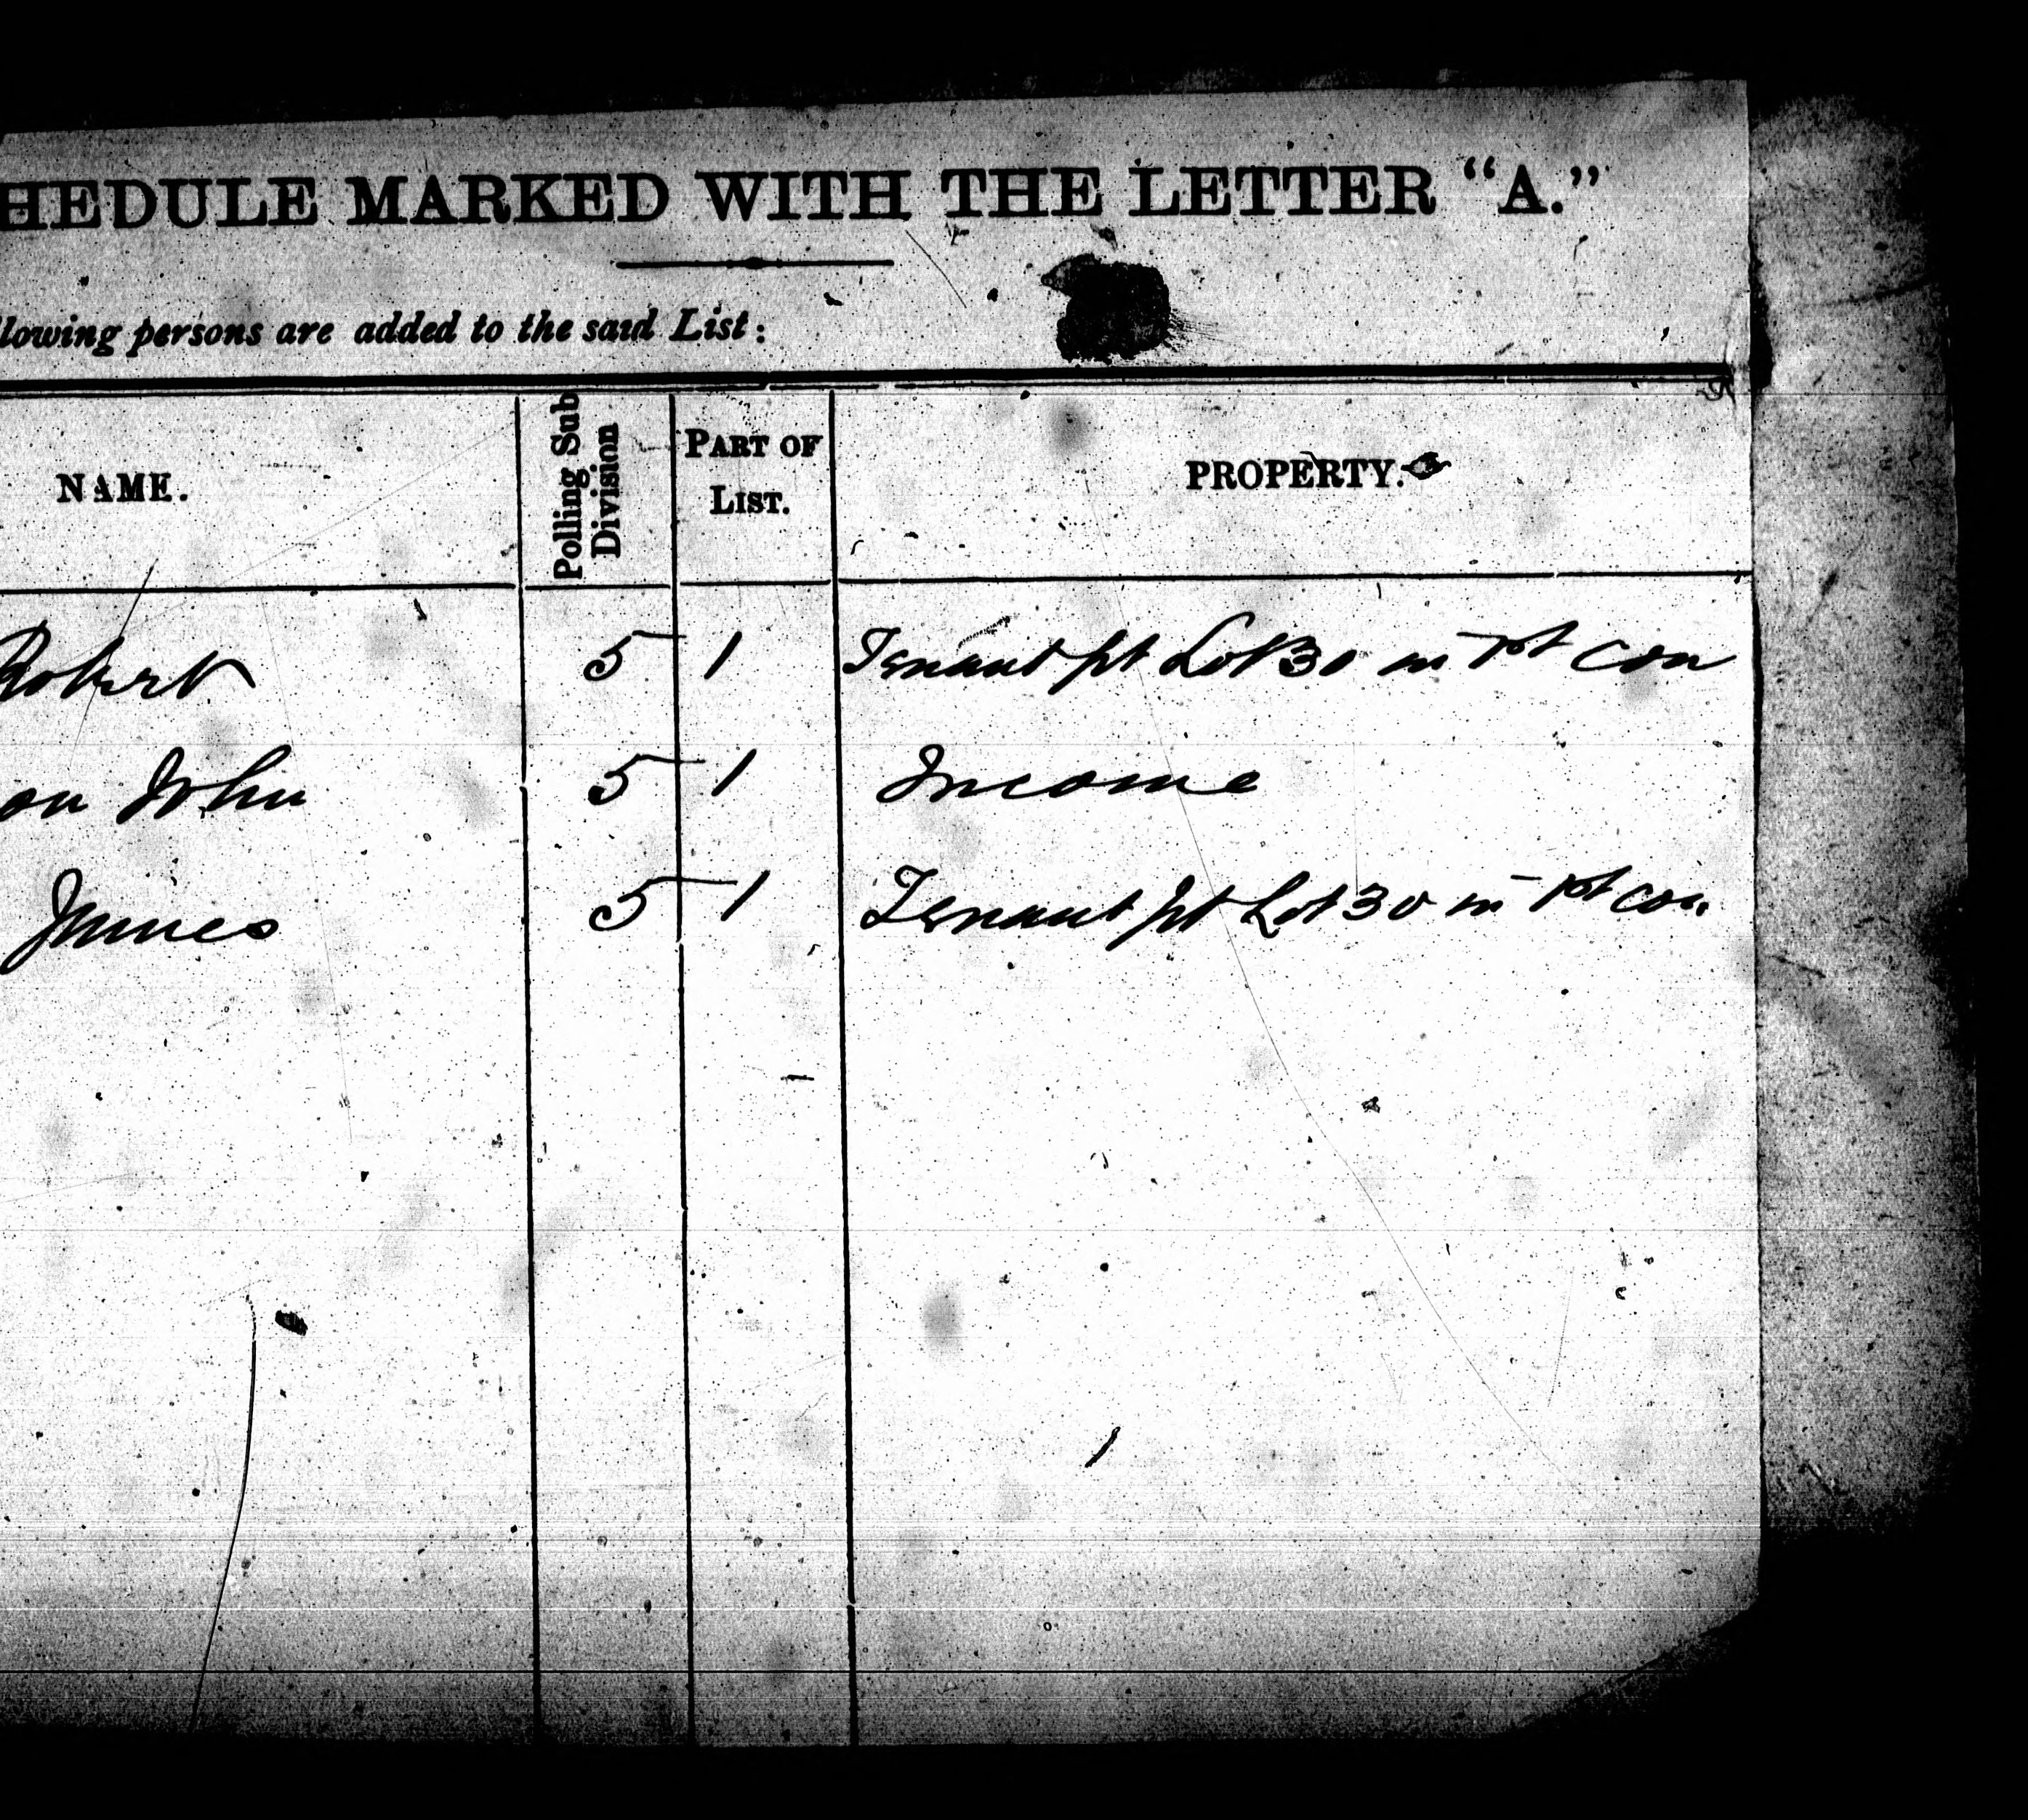 HEDULE MARKED WITH THE LETTER "A."
lowing persons are added to the said List:
NAME.
Polling Sub
Division
PART OF
LIST.
PROPERTY.
Robert 5 1 Tenant pt Lot 30 in 1st con
on John 5 1 Income
James 5 1 Tenant pt Lot 30 in 1st con